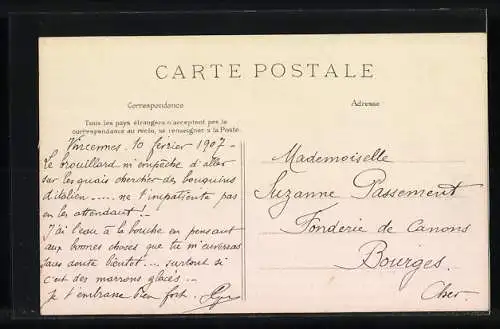 CARTE POSTALE
Correspondance
Adresse
Tous les pays étrangers n'acceptent pas la
correspondance au recto, se renseigner à la Poste
Vincennes. 10 février 1907 -
Le brouillard m'empêche d'aller
sur les quais chercher des bouquins
d'italien ..... ne t'impatiente pas
en les attendant. -
J'ai l'eau à la bouche en pensant
aux bonnes choses que tu m'enverras
sans doute bientôt ... surtout si
c'est des marrons glacés ...
Je t'embrasse bien fort.
Mademoiselle
Suzanne Passement
Fonderie de Canons
Bourges.
Cher.